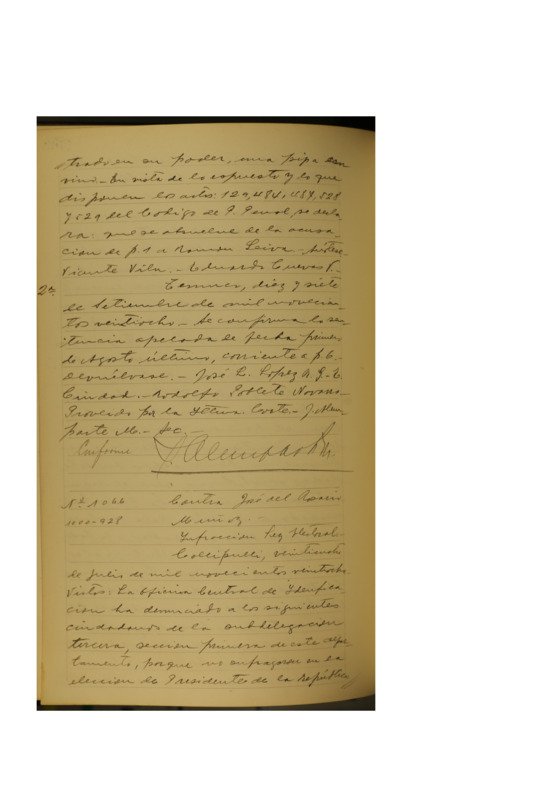 trado en su poder, una pipa con
vino.- En vista de lo expuesto y lo que
disponen los arts: 129, 484, 534, 528
y 529 del Código de P. Penal, se decla
ra: que se absuelve de la acusa-
ción de f 1 a Ramon Leiva.-
Vicente Vila.- Eduardo Cuevas V.-
2ª Temuco, diez y siete
de Setiembre de mil novecien-
tos veintiocho.- Se confirma la sen-
tencia apelada de fecha primero
de Agosto último, corriente a f 6.-
Devuélvase.- José L. Lopez
Ciudad.- Rodolfo Poblete
Proveido por la Iltma. Corte.- J Alem-
parte M.- Sec.-
Conforme J. Alemparte M.
Nº 1066 Contra José del Rosario
1000-928 Muñoz.-
Infraccion Ley Electoral.-
Collipulli, veinticuatro
de Julio de mil novecientos veintiocho.
Vistos: La Oficina Central de Idenfica-
cion ha denunciado a los siguientes
ciudadanos de la subdelegacion
tercera, seccion primera de este depar-
tamento, porque no sufragaron en la
eleccion de Presidente de la República